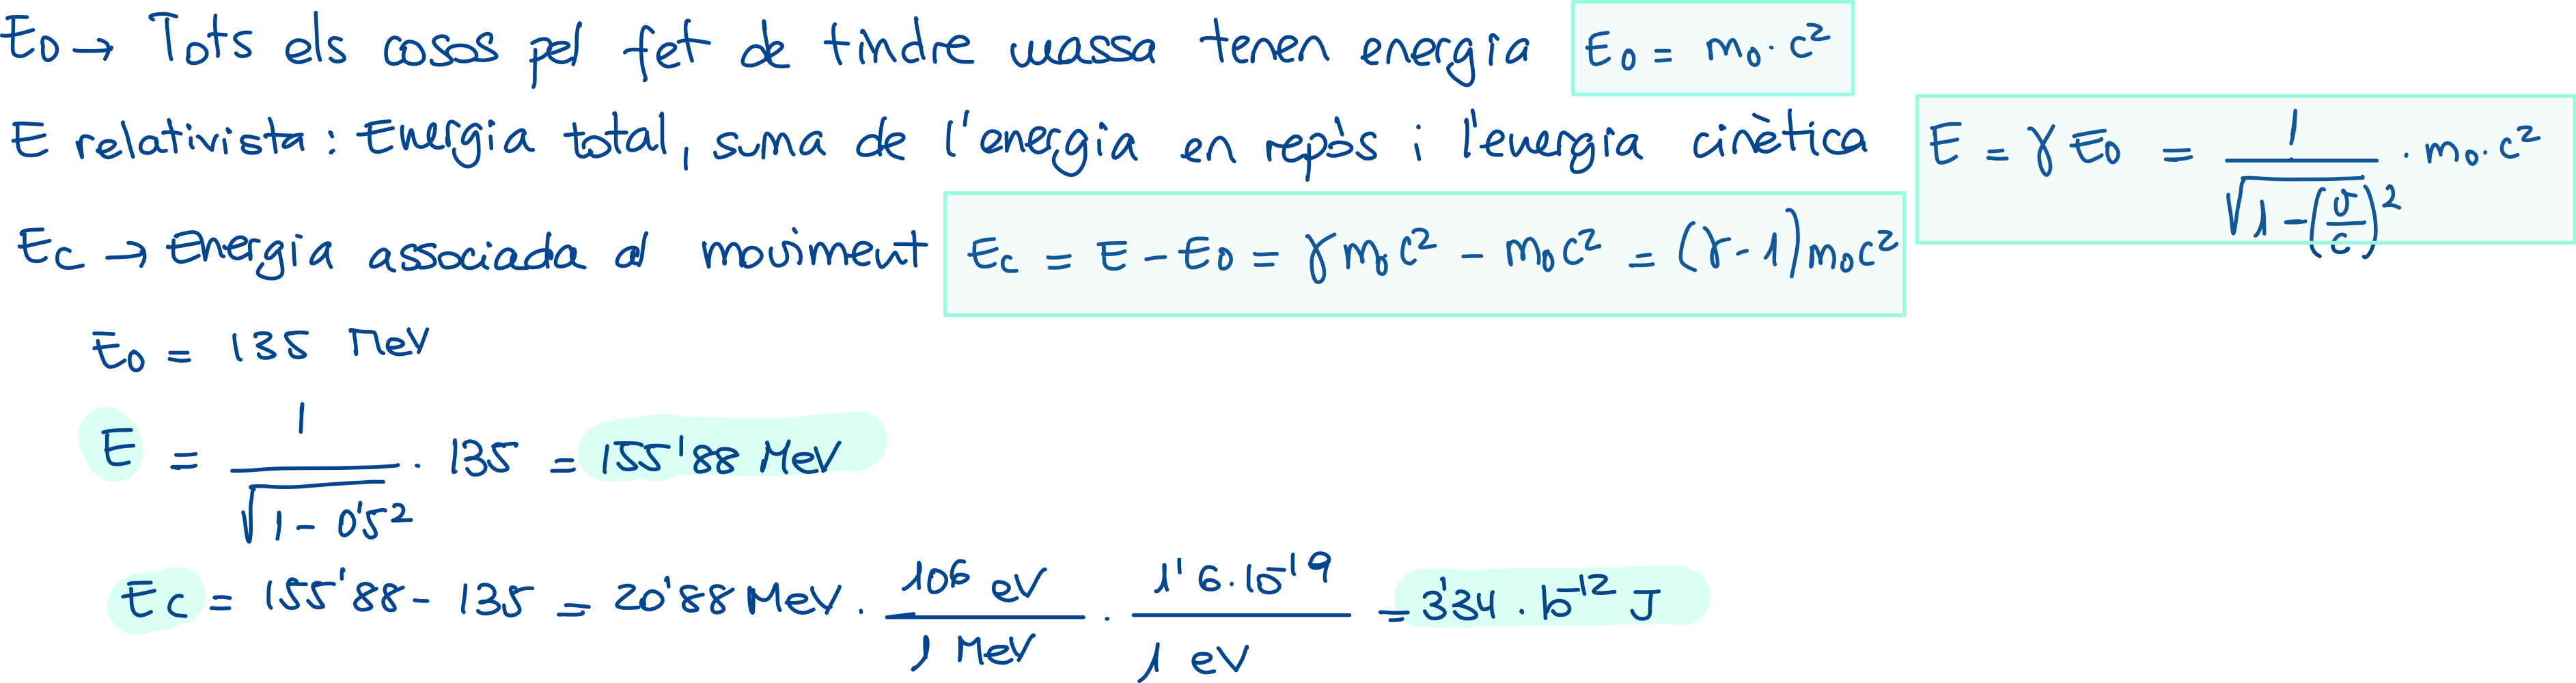 E₀ → Tots els cosos pel fet de tindre massa tenen energia E₀ = m₀ · c²
E relativista: Energia total, suma de l'energia en repòs i l'energia cinètica E = γ E₀ = 1 / √(1 - (v/c)²) · m₀ · c²
Ec → Energia associada al moviment Ec = E - E₀ = γ m₀ c² - m₀ c² = (γ - 1) m₀ c²
E₀ = 135 MeV
E = 1 / √(1 - 0'5²) · 135 = 155'88 MeV
Ec = 155'88 - 135 = 20'88 MeV · 10⁶ eV / 1 MeV · 1'6·10⁻¹⁹ / 1 eV = 3'34 · 10⁻¹² J